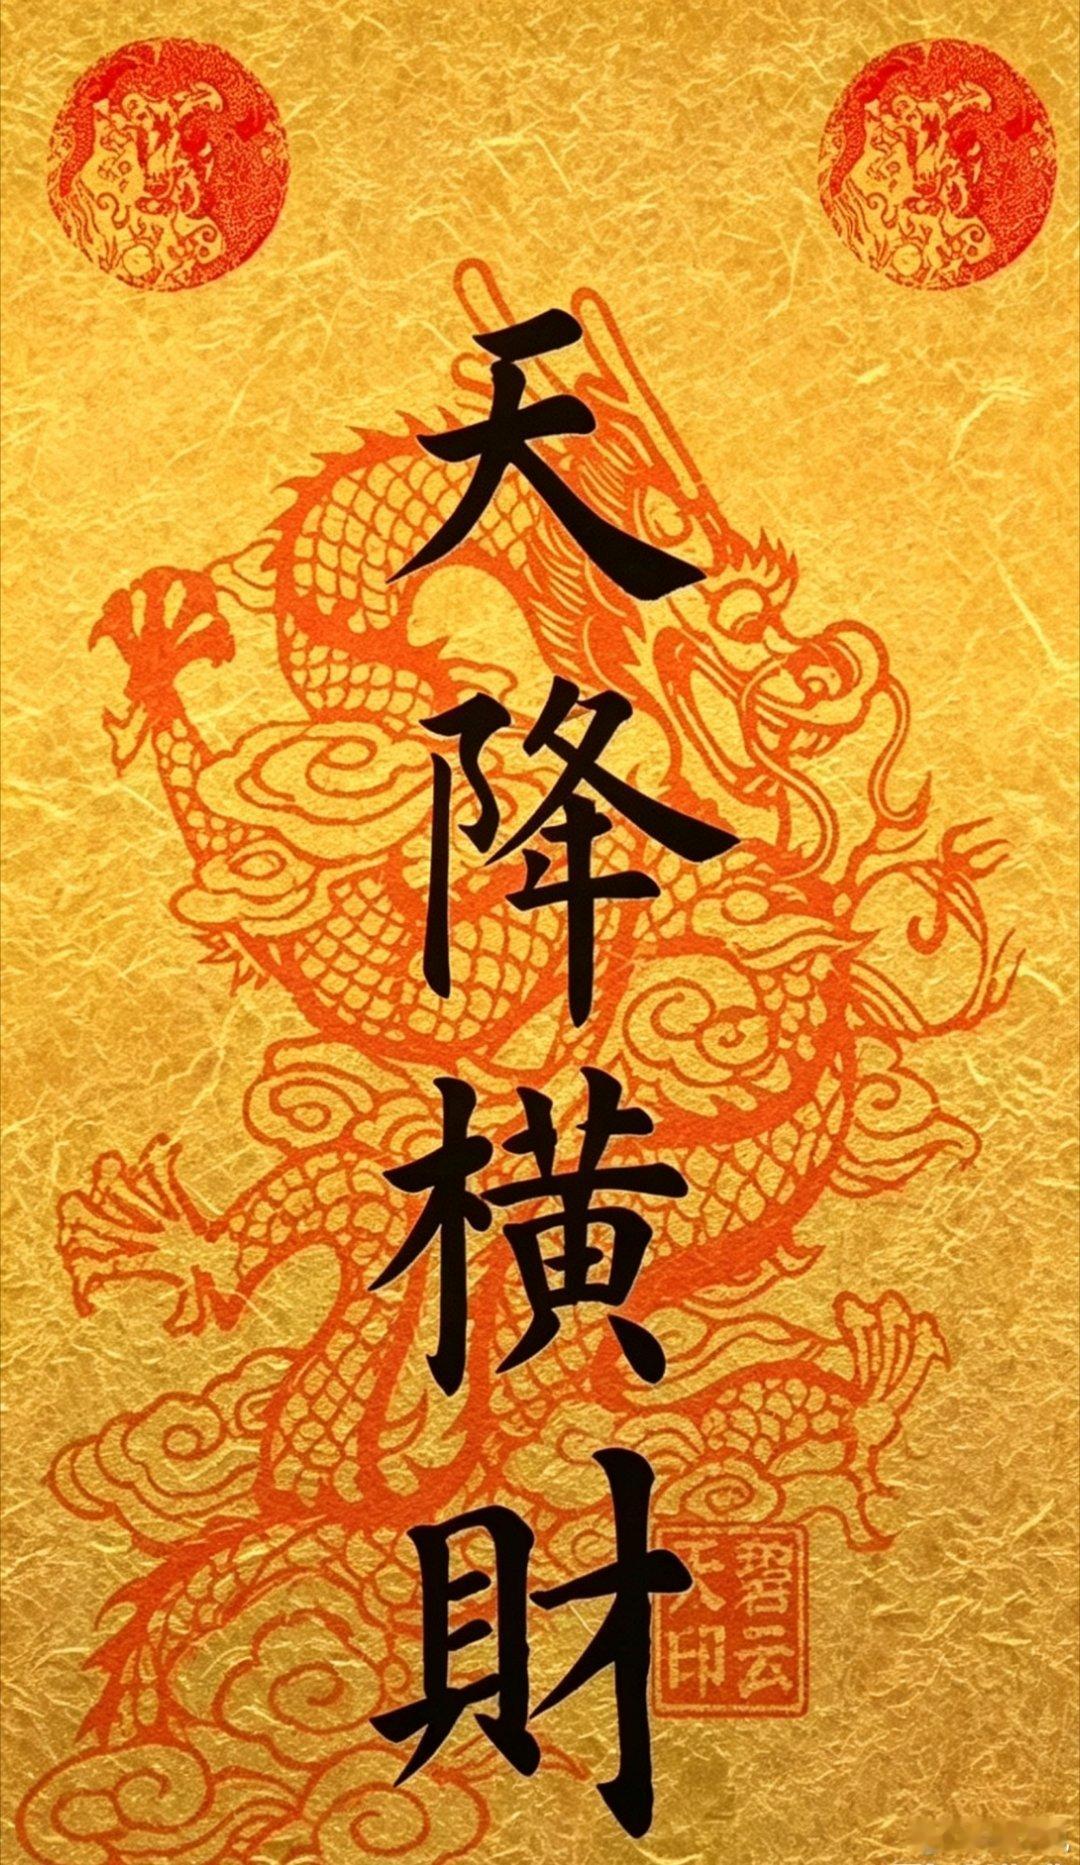 天降橫財
碧云
天印